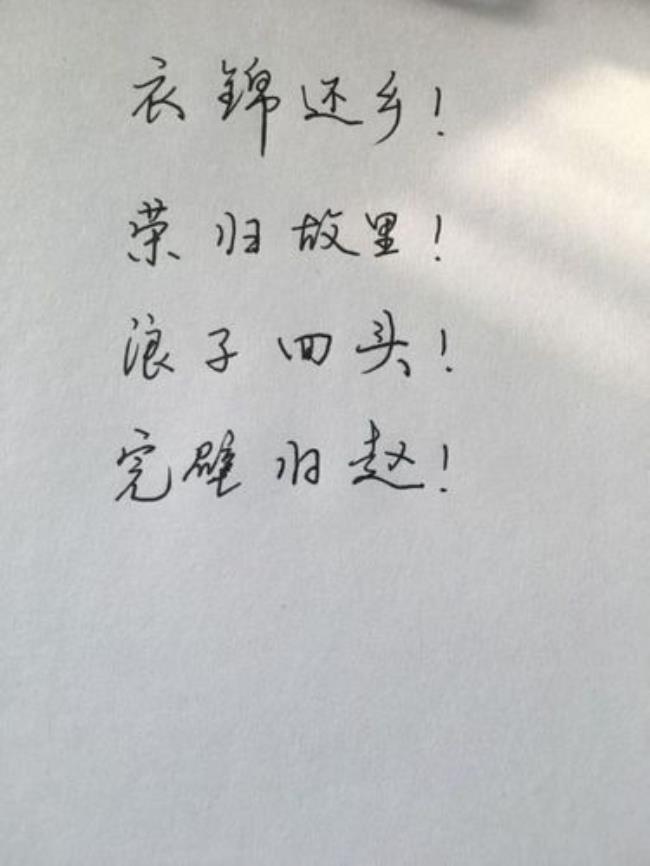 衣錦还乡！
荣归故里！
浪子回头！
完璧归赵！